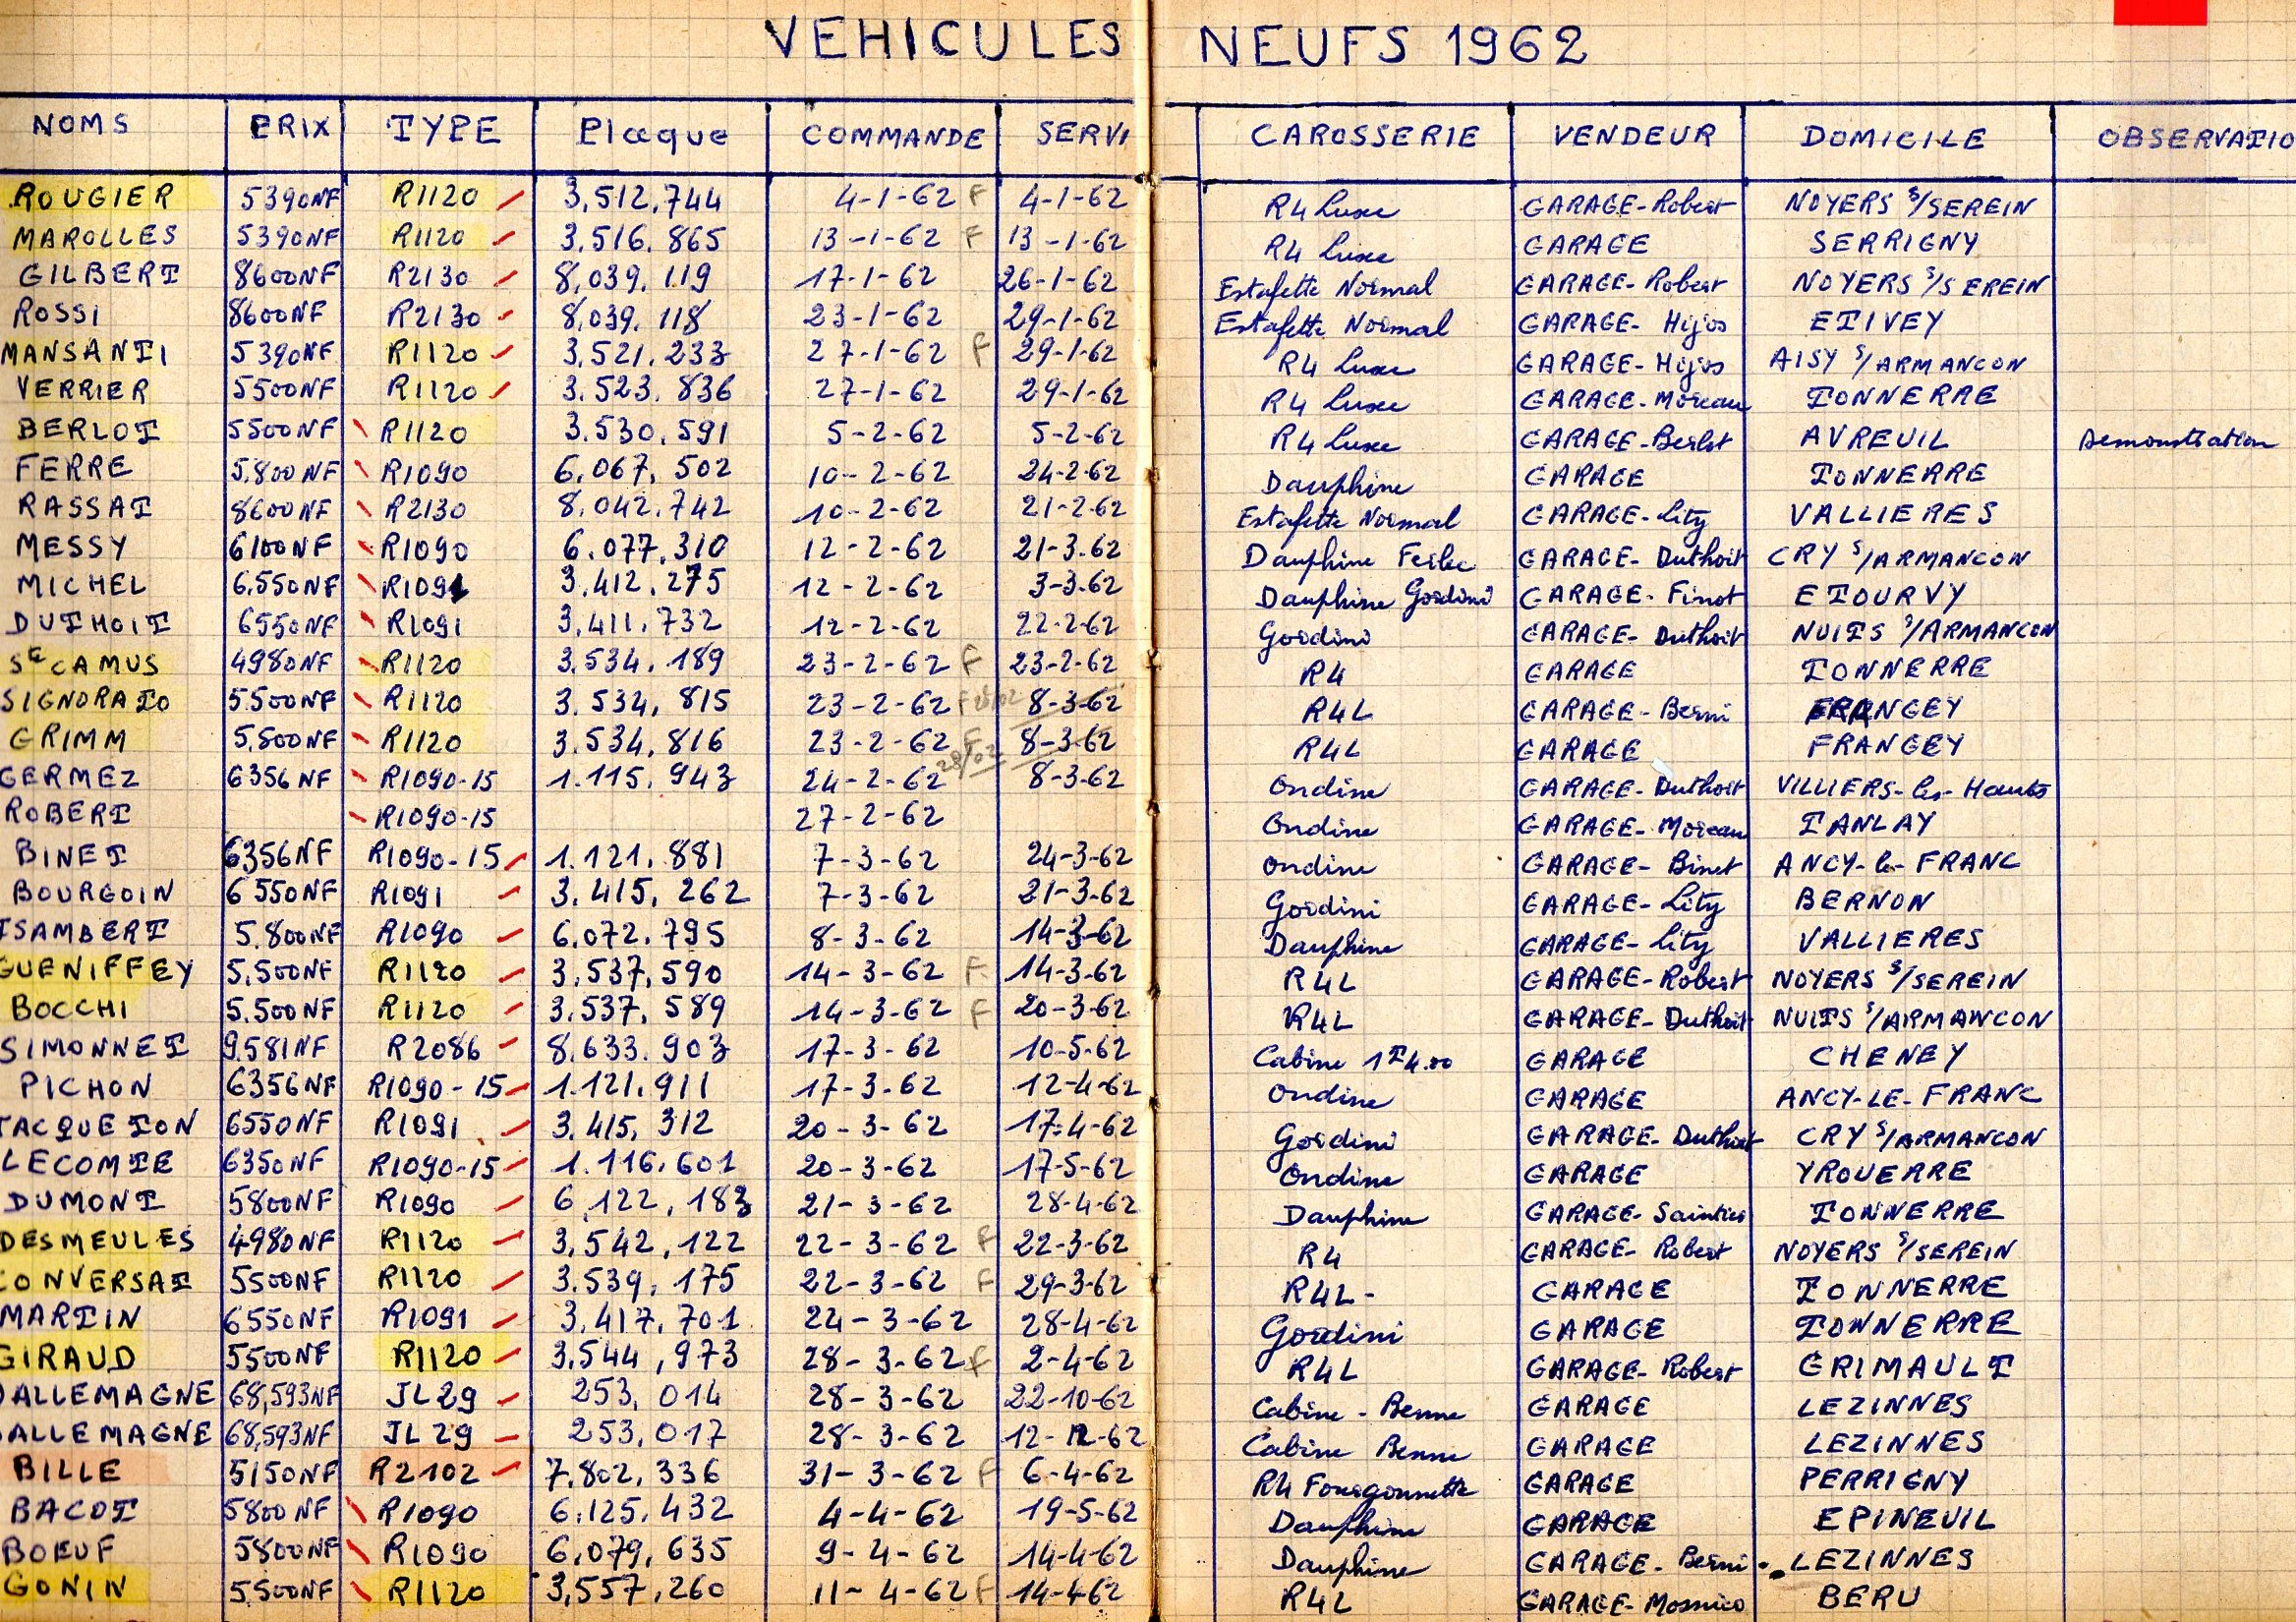 VEHICULES NEUFS 1962
NOMS PRIX TYPE Plaque COMMANDE SERVI CAROSSERIE VENDEUR DOMICILE OBSERVATIO
ROUGIER 5390NF R1120 3.512.744 4-1-62 F 4-1-62 R4 Luxe GARAGE-Robert NOYERS s/SEREIN
MAROLLES 5390NF R1120 3.516.865 13-1-62 F 13-1-62 R4 Luxe GARAGE SERRIGNY
GILBERT 8600NF R2130 8.039.119 17-1-62 26-1-62 Estafette Normal GARAGE-Robert NOYERS s/SEREIN
ROSSI 8600NF R2130 8.039.118 23-1-62 29-1-62 Estafette Normal GARAGE-Hijos ETIVEY
MANSANTI 5390NF R1120 3.521.233 27-1-62 F 29-1-62 R4 Luxe GARAGE-Hijos AISY s/ARMANCON
VERRIER 5500NF R1120 3.523.836 27-1-62 29-1-62 R4 Luxe GARAGE-Moreau TONNERRE
BERLOT 5500NF R1120 3.530.591 5-2-62 5-2-62 R4 Luxe GARAGE-Berlot AVREUIL Demonstration
FERRE 5.800NF R1090 6.067.502 10-2-62 24-2-62 Dauphine GARAGE TONNERRE
RASSAT 8600NF R2130 8.042.742 10-2-62 21-2-62 Estafette Normal GARAGE-Lity VALLIERES
MESSY 6100NF R1090 6.077.310 12-2-62 21-3.62 Dauphine Ferlec GARAGE-Duthoit CRY s/ARMANCON
MICHEL 6.550NF R1091 3.412.275 12-2-62 3-3-62 Dauphine Gordini GARAGE-Finot ETOURVY
DUTHOIT 6550NF R1091 3.411.732 12-2-62 22-2-62 Gordini GARAGE-Duthoit NUITS s/ARMANCON
Sté CAMUS 4980NF R1120 3.534.189 23-2-62 F 23-2-62 R4 GARAGE TONNERRE
SIGNORATO 5.500NF R1120 3.534.815 23-2-62 F 8-3-62 R4L GARAGE-Berni FRANGEY
GRIMM 5.500NF R1120 3.534.816 23-2-62 F 28/02 8-3-62 R4L GARAGE FRANGEY
GERMEZ 6356NF R1090-15 1.115.943 24-2-62 8-3-62 Ondine GARAGE-Duthoit VILLIERS-les-Hauts
ROBERT R1090-15 27-2-62 Ondine GARAGE-Moreau TANLAY
BINET 6356NF R1090-15 1.121.881 7-3-62 24-3-62 Ondine GARAGE-Binet ANCY-le-FRANC
BOURGOIN 6550NF R1091 3.415.262 7-3-62 21-3-62 Gordini GARAGE-Lity BERNON
ISAMBERT 5.800NF R1090 6.072.795 8-3-62 14-3-62 Dauphine GARAGE-Lity VALLIERES
GUENIFFEY 5.500NF R1120 3.537.590 14-3-62 F 14-3-62 R4L GARAGE-Robert NOYERS s/SEREIN
BOCCHI 5.500NF R1120 3.537.589 14-3-62 F 20-3-62 R4L GARAGE-Duthoit NUITS s/ARMANCON
SIMONNET 9.581NF R2086 8.633.903 17-3-62 10-5-62 Cabine 1T4.00 GARAGE CHENEY
PICHON 6356NF R1090-15 1.121.911 17-3-62 12-4-62 Ondine GARAGE ANCY-LE-FRANC
TACQUETON 6550NF R1091 3.415.312 20-3-62 17-4-62 Gordini GARAGE-Duthoit CRY s/ARMANCON
LECOMTE 6350NF R1090-15 1.116.601 20-3-62 17-5-62 Ondine GARAGE YROUERRE
DUMONT 5800NF R1090 6.122.183 21-3-62 28-4-62 Dauphine GARAGE- TONNERRE
DESMEULES 4980NF R1120 3.542.122 22-3-62 F 22-3-62 R4 GARAGE-Robert NOYERS s/SEREIN
CONVERSAT 5500NF R1120 3.539.175 22-3-62 F 29-3-62 R4L- GARAGE TONNERRE
MARTIN 6550NF R1091 3.417.701 24-3-62 28-4-62 Gordini GARAGE TONNERRE
GIRAUD 5500NF R1120 3.544.973 28-3-62 F 2-4-62 R4L GARAGE-Robert GRIMAULT
DALLEMAGNE 68,593NF JL29 253.014 28-3-62 22-10-62 Cabine-Benne GARAGE LEZINNES
DALLEMAGNE 68,593NF JL29 253.017 28-3-62 12-12-62 Cabine Benne GARAGE LEZINNES
BILLE 5150NF R2102 7.802.336 31-3-62 F 6-4-62 R4 Fourgonnette GARAGE PERRIGNY
BACOT 5800NF R1090 6.125.432 4-4-62 19-5-62 Dauphine GARAGE EPINEUIL
BOEUF 5800NF R1090 6.079.635 9-4-62 14-4-62 Dauphine GARAGE-Berni LEZINNES
GONIN 5.500NF R1120 3.557.260 11-4-62 F 14-4-62 R4L GARAGE- BERU